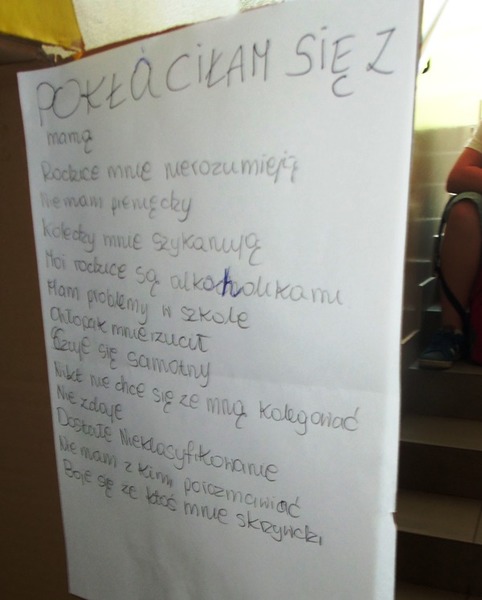 POKŁÓCIŁAM SIĘ Z
mamą
Rodzice mnie nierozumieją
Nie mam pieniędzy
Koledzy mnie szykanują
Moi rodzice są alkocholikami
Mam problemy w szkole
Chłopak mnie rzucił
Czuje się samotny
Nikt nie chce się ze mną kolegować
Nie zdaje
Dostałe Nieklasyfikowanie
Nie mam z kim porozmawiać
Boje się że ktoś mnie skrzywdzi